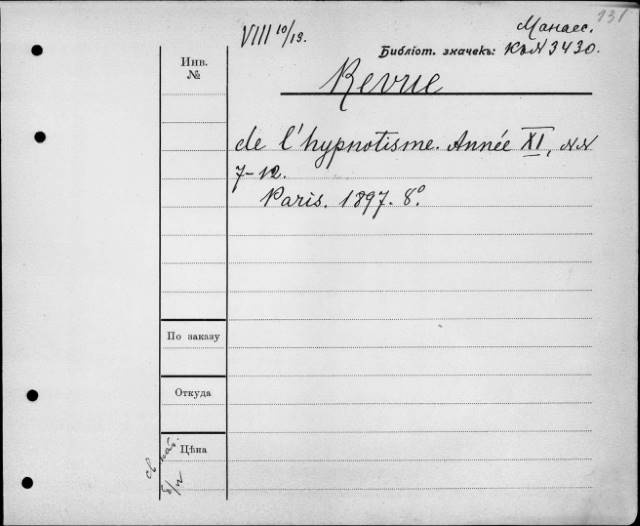 131
Манаес.
VIII 10/19.
Библіот. значекъ: К.N 3430.
Инв.
№
Revue
de l'hypnotisme. Année XI, NN
7-12.
Paris. 1897. 8°.
По заказу
Откуда
Цѣна